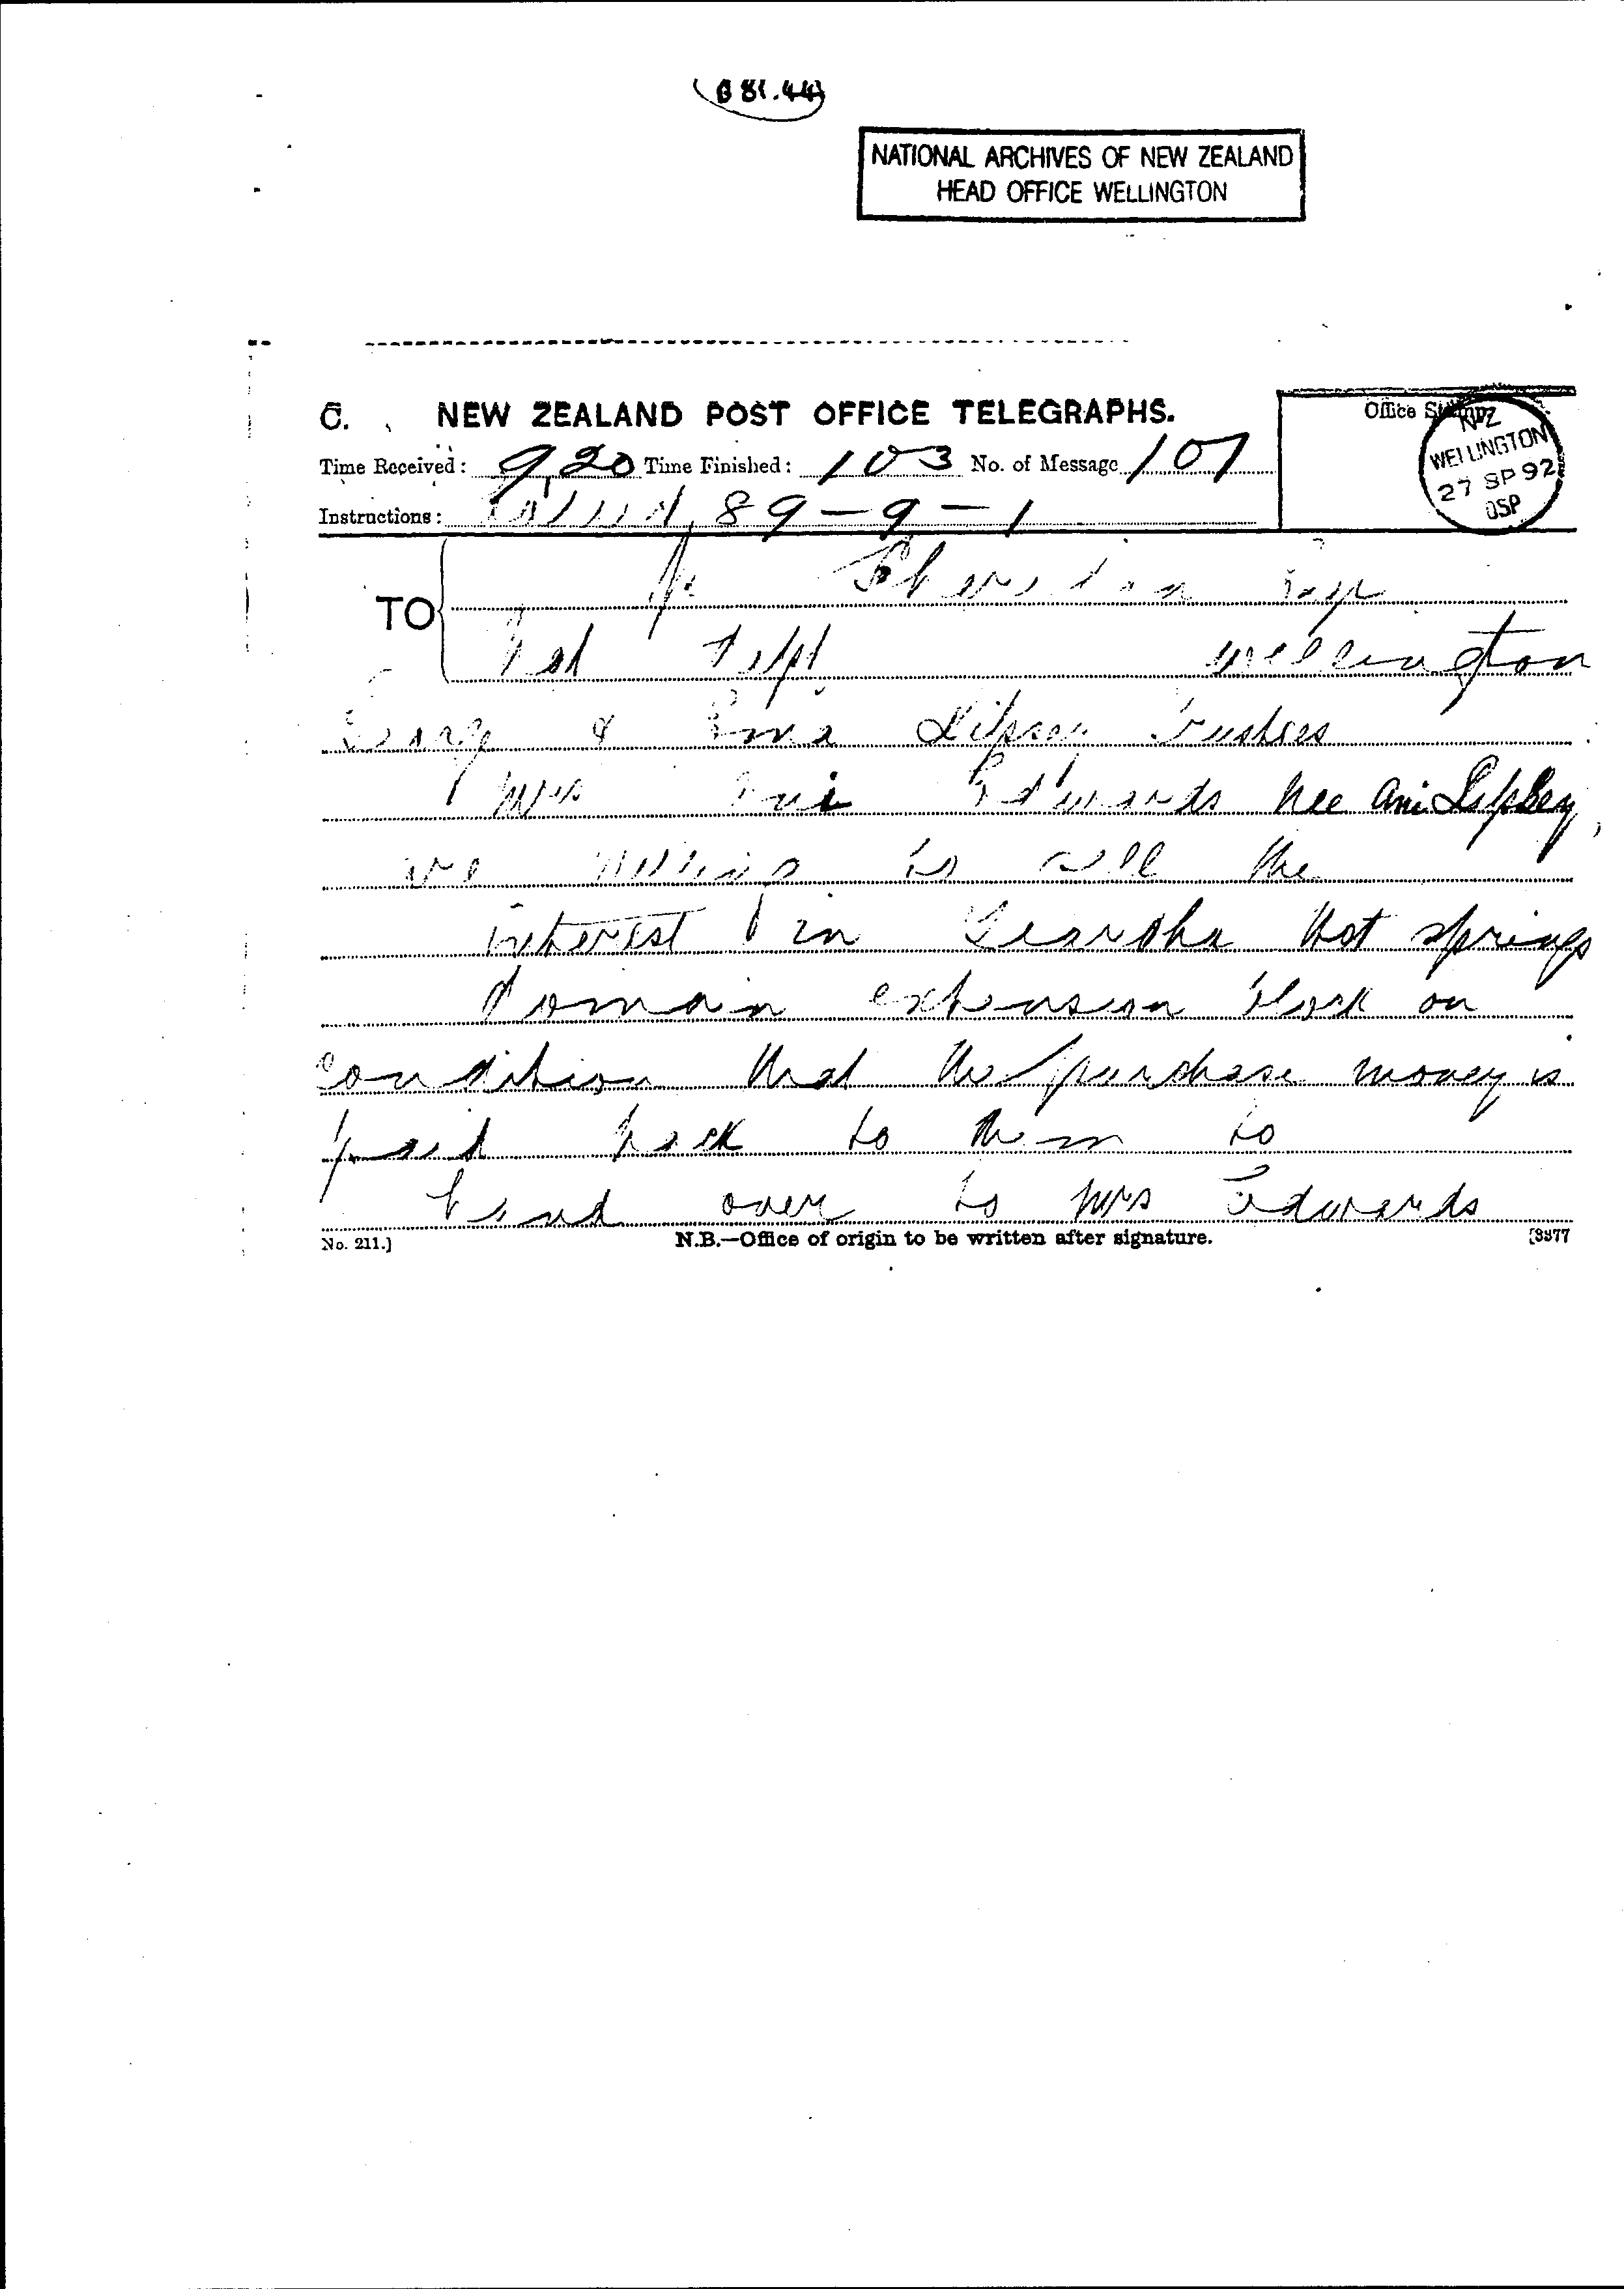 (B 81.44)
NATIONAL ARCHIVES OF NEW ZEALAND
HEAD OFFICE WELLINGTON
C. NEW ZEALAND POST OFFICE TELEGRAPHS.
Office Stamp
NZ
WELLINGTON
27 SP 92
OSP
Time Received: 9 20 Time Finished: 10 3 No. of Message 107
Instructions: 89-9-1
TO P Sheridan Esq
Nat Dept Wellington
& Ema Lipsey Trustees
Mrs Ani Edwards nee Ani Lipsey
are willing to sell the
interest in Tearoha Hot springs
domain extension block on
condition that the purchase money is
paid back to them to
hand over to Mrs Edwards
No. 211.] N.B.—Office of origin to be written after signature. [3377